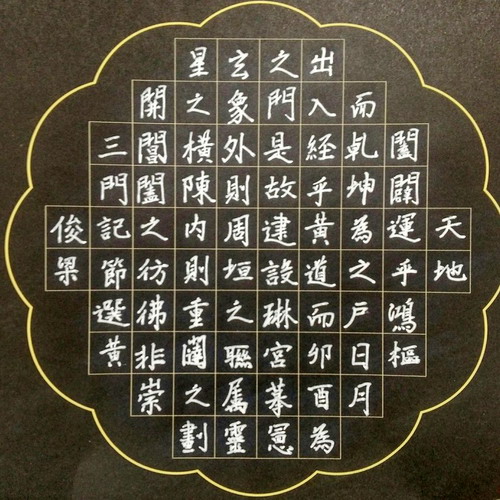 天地
闔闢運乎鴻樞
而乾坤為之戶日月
出入經乎黃道而卯酉為
之門是故建設琳宮摹憲
玄象外則周垣之聯属靈
星之橫陳內則重闥之劃
開閶闔之彷彿非崇
三門記節選黃
俊杲